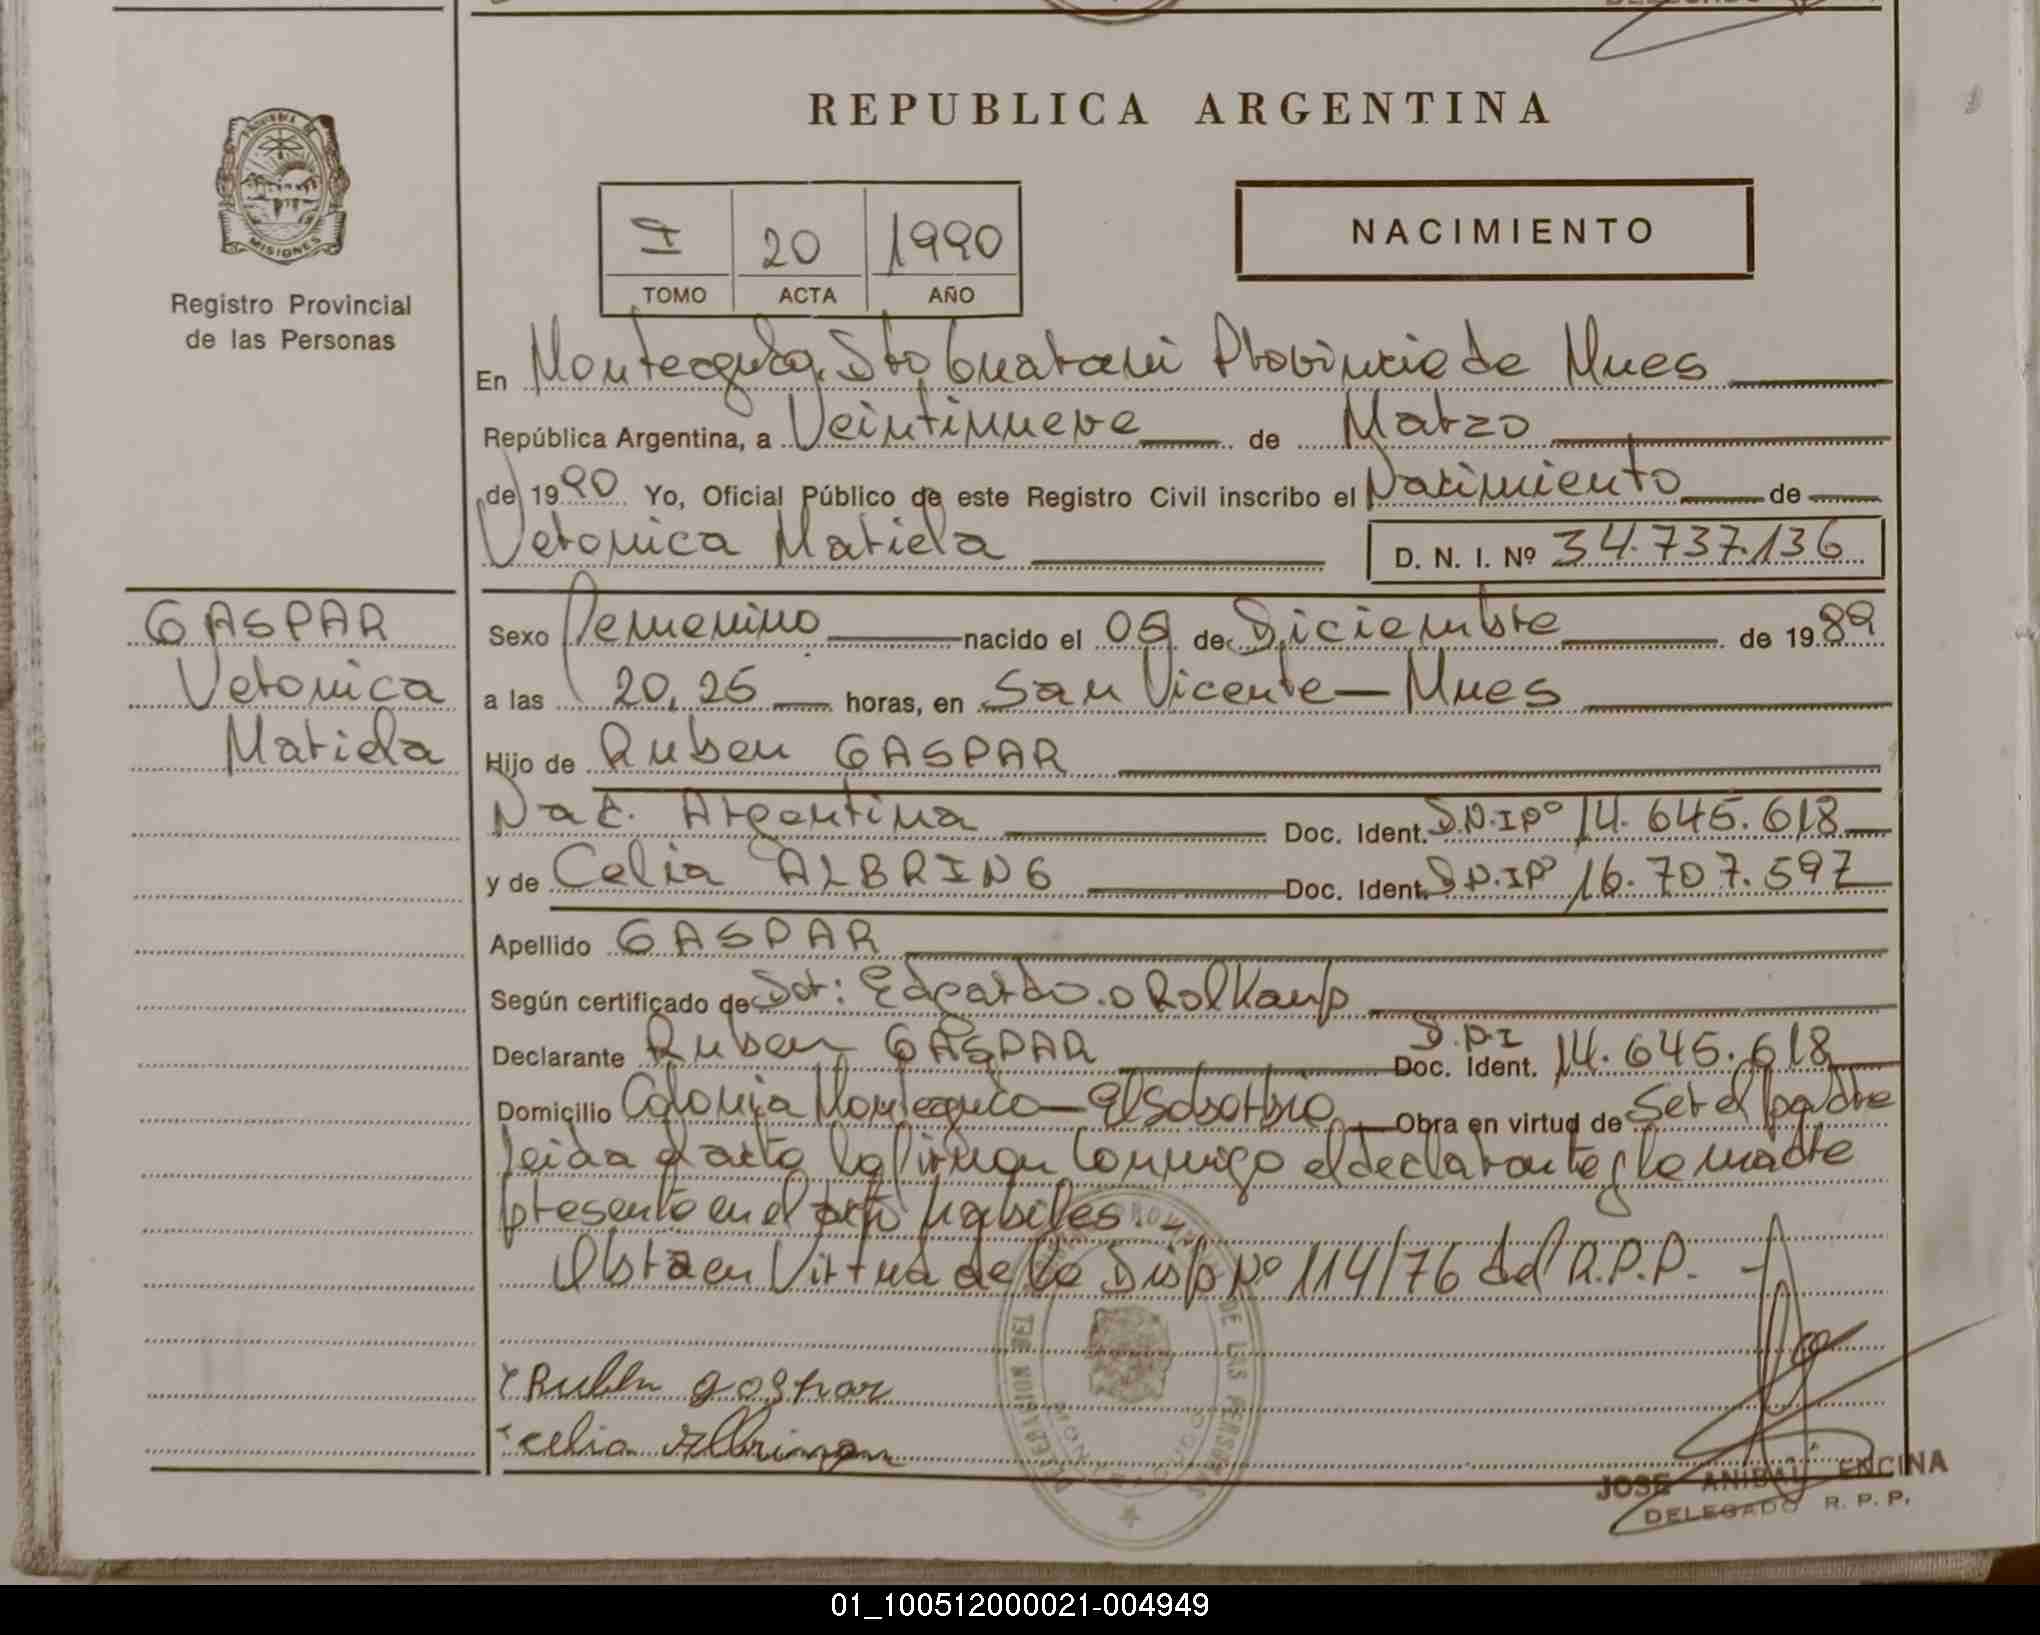 REPUBLICA ARGENTINA
PROVINCIA DE
MISIONES
Registro Provincial
de las Personas
I 20 1990
TOMO ACTA AÑO
NACIMIENTO
En Monteagudo, Dto Guarani Provincia de Mnes
República Argentina, a Veintinueve de Marzo
de 1990 Yo, Oficial Público de este Registro Civil inscribo el Nacimiento de
Veronica Mariela D. N. I. Nº 34.737.136
GASPAR
Veronica
Mariela
Sexo Femenino nacido el 09 de Diciembre de 1989
a las 20,25 horas, en San Vicente - Mnes
Hijo de Ruben GASPAR
Nac. Argentina Doc. Ident. D.N.I Nº 14.645.618
y de Celia ALBRING Doc. Ident. D.N.I Nº 16.707.597
Apellido GASPAR
Según certificado de Dor: Edgardo.O Rolkamp
Declarante Ruben GASPAR Doc. Ident. D.N.I 14.645.618
Domicilio Colonia Monteagudo - El Soberbio Obra en virtud de Ser el padre
leida el acta la firman conmigo el declarante y la madre
presente en el acto habiles. -
Obra en Virtud de la Disp Nº 114/76 del R.P.P. -
Ruben gaspar
celia Albring
DE LAS PERSONAS
JOSE ANIBAL ENCINA
DELEGADO R. P. P.
01_100512000021-004949